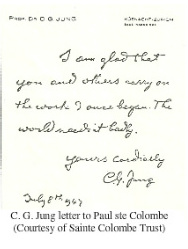 PROF. DR. C. G. JUNG
KÜSNACHT-ZÜRICH
I am glad that
you and others carry on
the work I once began. The
world needs it badly.
Yours cordially
C.G. Jung
July 8th
C. G. Jung letter to Paul ste Colombe
(Courtesy of Sainte Colombe Trust)